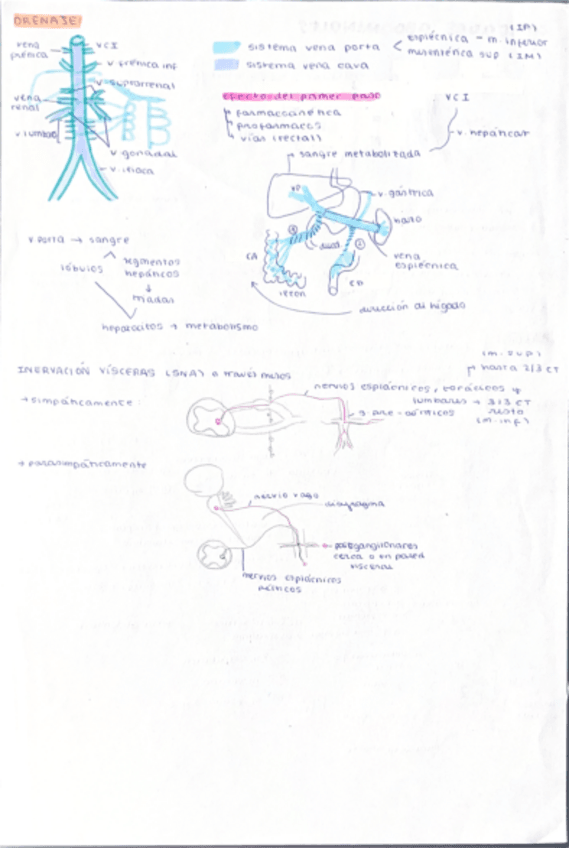 DRENAJE:
vena frénica
VCI
v frénica inf
v suprarrenal
vena renal
v lumbar
v gonadal
v iliaca
sistema vena porta < esplécnica - m. inferior (IP)
mesentérica sup (IM)
sistema vena cava
efecto del primer paso
farmacocinética
profármacos
vías (rectal)
VCI
v. hepáticas
sangre metabolizada
VP
v. gástrica
bazo
vena esplécnica
duod
CA
CD
ileon
dirección al hígado
v porta → sangre
lóbulos
segmentos hepáticos
hepatocitos → metabolismo
INERVACIÓN VÍSCERAS (SNA) a través
→ simpáticamente:
nervios esplácnicos, torácicos y lumbares → 1/3 CT
(m. sup)
hasta 2/3 CT
resto
(m. inf)
g pre-aórticos
→ parasimpáticamente
nervio vago
diafragma
posganglionares cerca o en pared visceral
nervios esplácnicos pélvicos